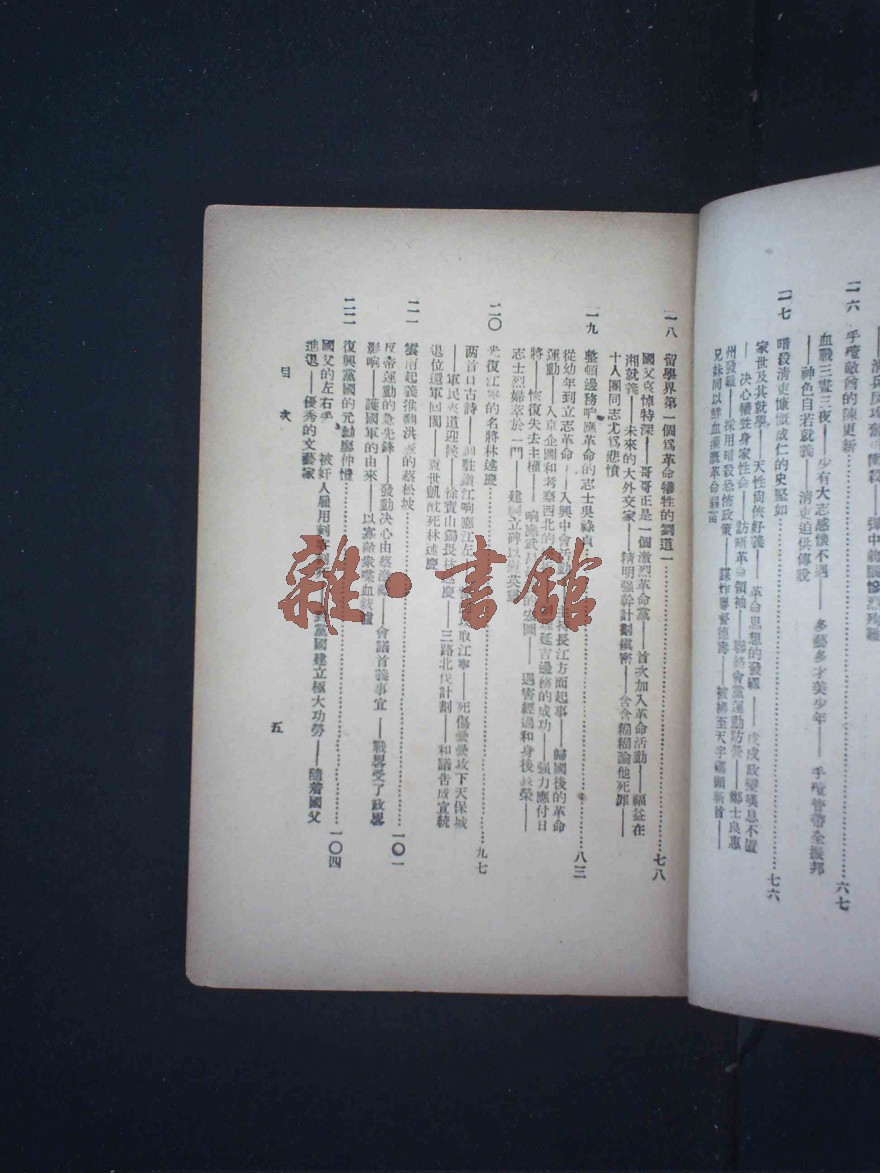 ——清兵反攻奮
一六 手殪敵酋的陳更新……六七
血戰三晝三夜——少有大志感懷不遇——多藝多才美少年——手殪管帶金振邦
——神色自若就義——清吏迫供傳說
一七 暗殺清吏慷慨成仁的史堅如……七六
家世及其就學——天性尚俠好義——革命思想的發軔——戊戌政變嘆息不置
——決心犧牲身家性命——訪晤革命領袖——聯絡會黨運動防營——鄭士良惠
州發難——採用暗殺恐怖政策——謀炸粵督德壽——被綁至天字碼頭斬首——
兄妹同以鮮血灌溉革命
一八 留學界第一個爲革命犧牲的劉道一……七八
國父哀悼特深——哥哥正是一個激烈革命黨——首次加入革命活動——福益在
湘就義——未來的大外交家——精明强幹計劃縝密——含含糊糊論他死罪——
十人團同志尤爲悲憤
一九 整頓邊務响應革命的志士吳祿貞……八三
從幼年到立志革命——入興中會活動——主持長江方面起事——歸國後的革命
運動——入京企圖和考察西北的 延吉邊務的成功——强力應付日
將——恢復失去主權——响應武 的宏圖——遇害經過和身後哀榮——
志士烈婦萃於一門——建祠立碑以 英
二〇 光復江寧的名將林述慶……九七
兩首口古詩——回駐鎮江响應江左 取江寧——死傷纍纍攻下天保城
——軍民夾道迎候——徐寶山錫良 林述慶——三路北伐計劃——和議告成宣統
退位還軍回閩——袁世凱酖死林述慶
二一 雲南起義推翻洪憲的蔡松坡……一〇一
反帝運動的急先鋒——發動決心由蔡 ——會議首義事宜——戰畧受了政畧
影响——護國軍的由來——以寡敵衆喋血
二二 復興黨國的元勳廖仲愷……一〇四
國父的左右手——被奸人雇用刺客 ——對黨國建立極大功勞——隨着國父
進退——優秀的文藝家
目次
五
雜·書館